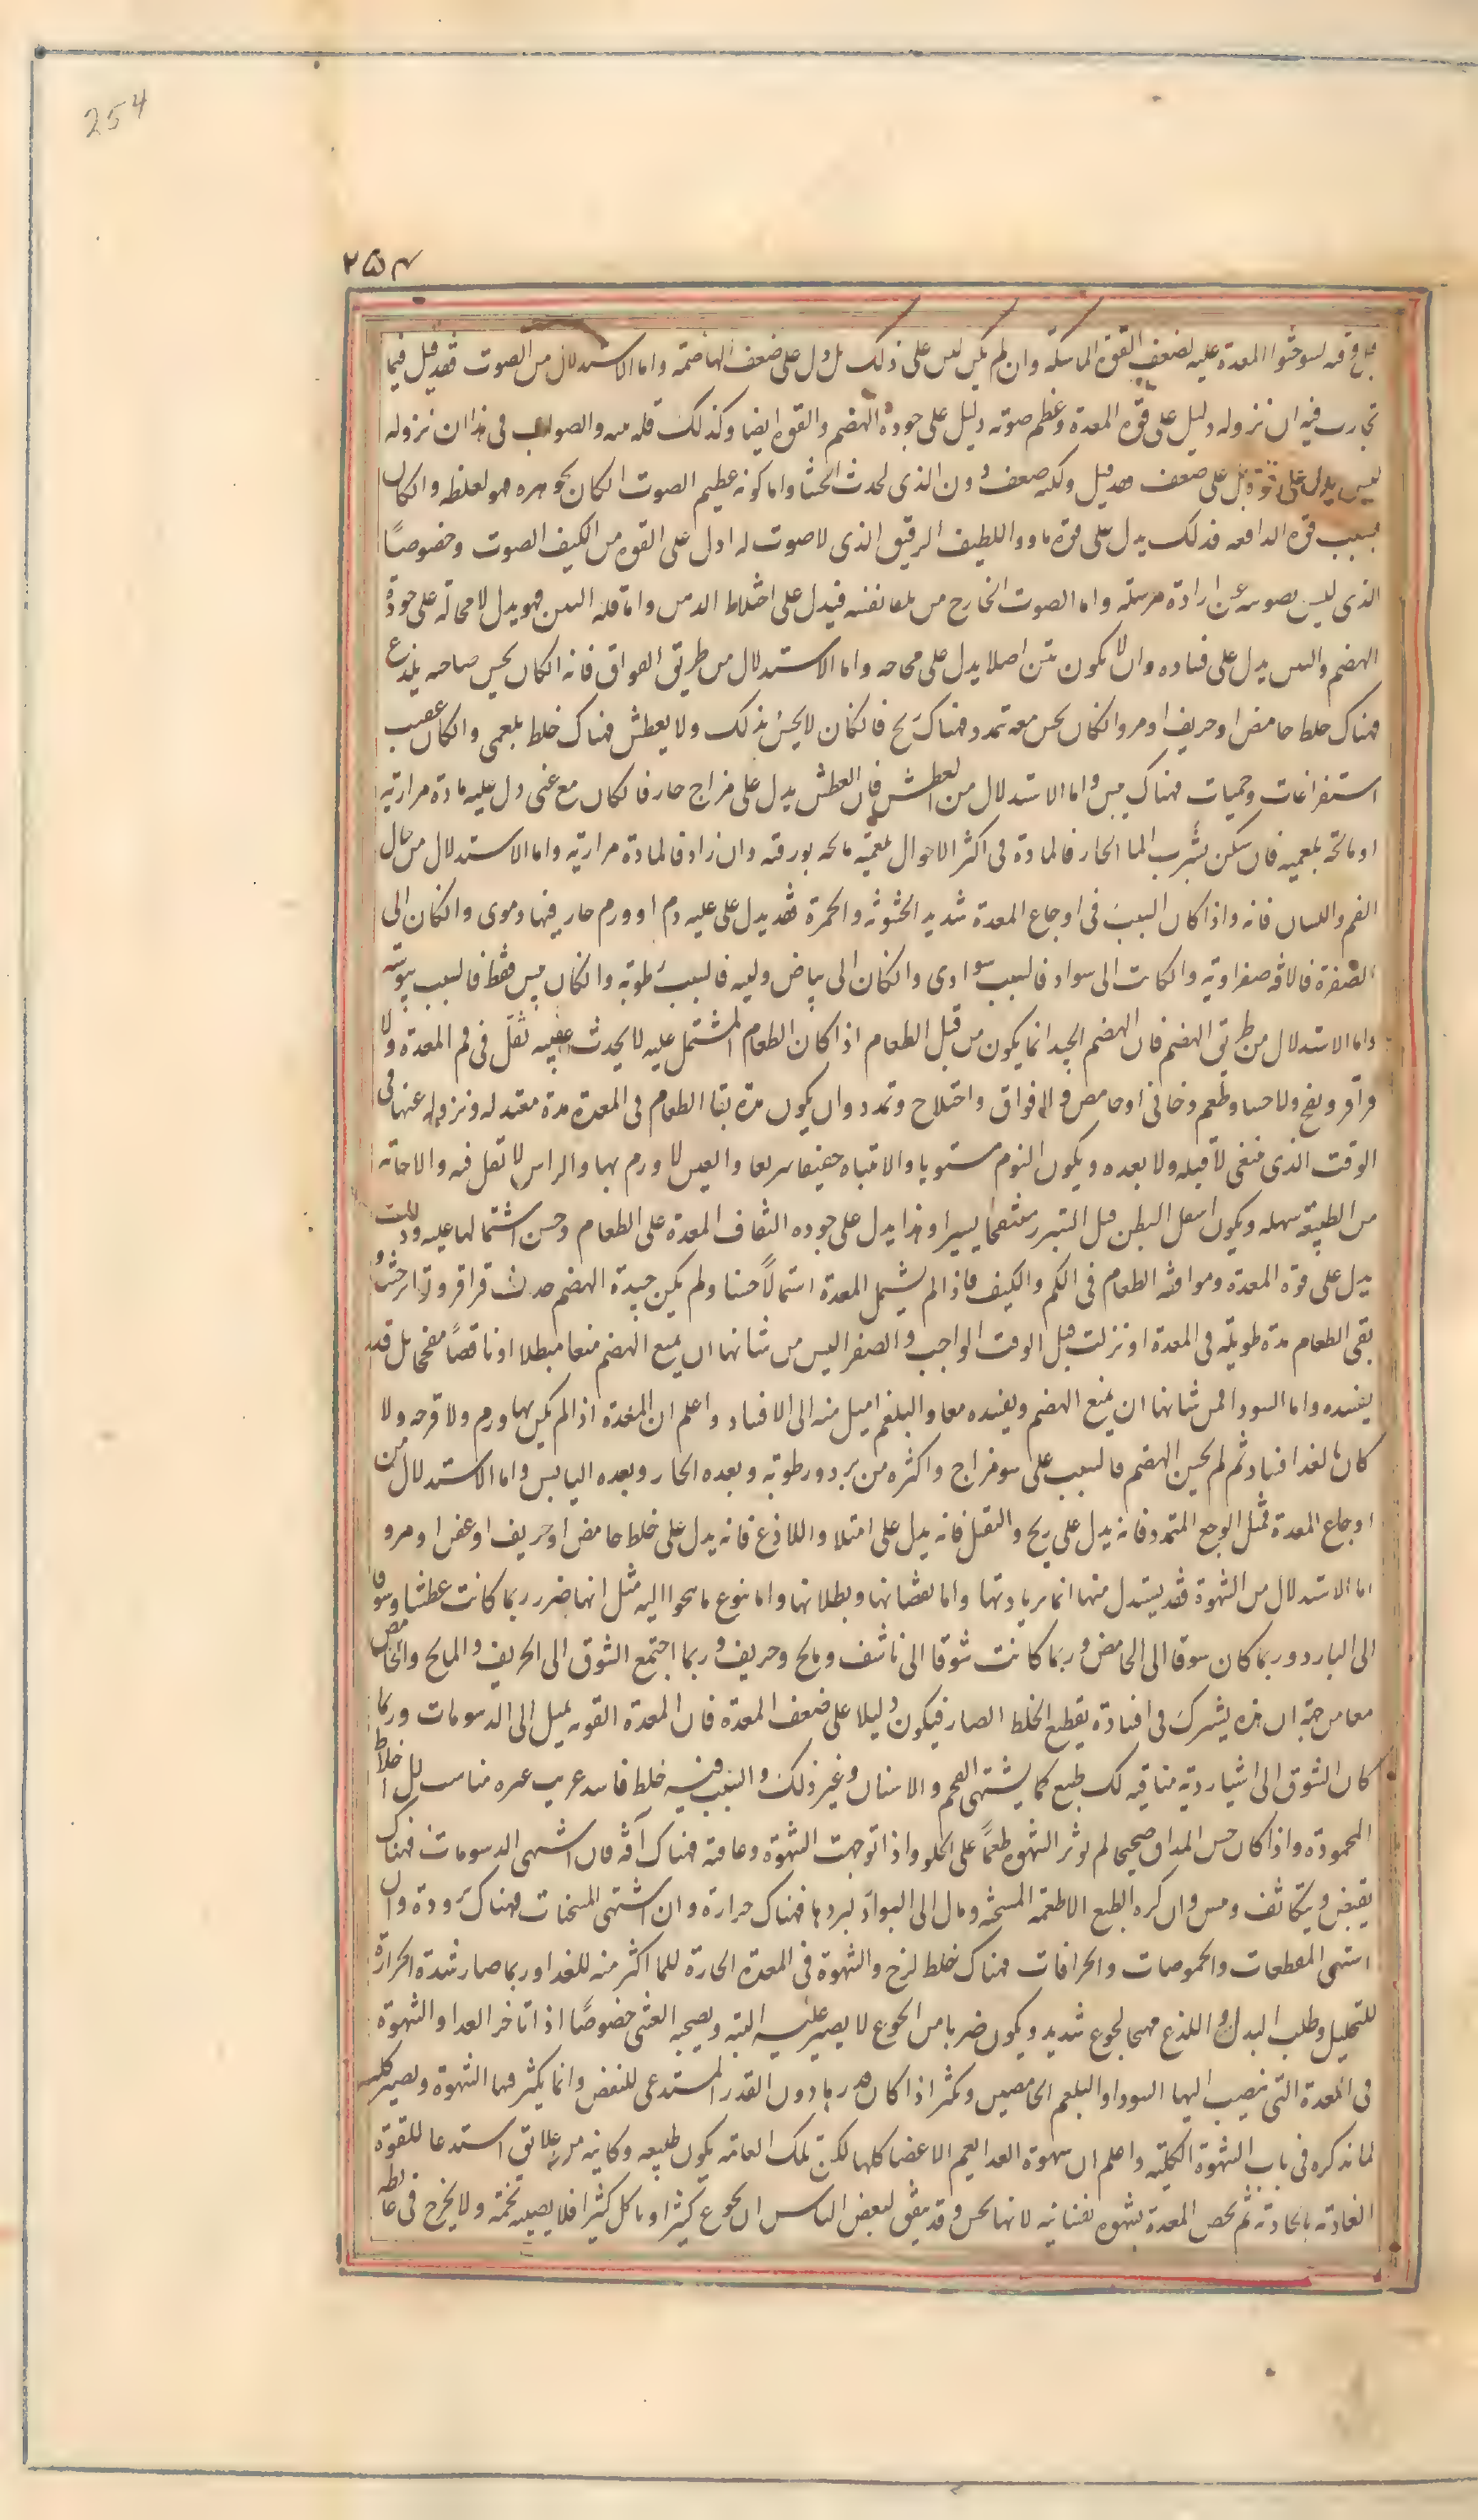 254
۲۵۴
المعدة عليه لضعف القوة الماسكة وان لم يكن ليس على ذلك بل دل على ضعف الهاضمة واما الاستدلال من الصوت فقد قيل فيما
تجارب فيه ان نزوله دليل على قوة المعدة وعظم صوته دليل على جودة الهضم والقوة ايضا وكذلك قلة والصواب فى هذا ان نزوله
ليس يدل على قوة بل على ضعف ولكنه ضعف دون الذى يحدث الجشا واما كونه عظيم الصوت ان كان لجوهره فهو لغلظه وان كان
بسبب قوة الدافعة فذلك يدل على قوة ما واللطيف الرقيق الذى لا صوت له ادل على القوة من الكثيف الصوت وخصوصًا
الذى ليس تصويته عن ارادة مرسله واما الصوت الخارج من تلقا نفسه فيدل على اختلاط الذهن واما قلة النتن فهو يدل لا محالة على جودة
الهضم والنتن يدل على فساده وان لا يكون نتن اصلا يدل على فجاجه واما الاستدلال من طريق الفواق فانه ان كان يحس صاحبه بلذع
فهناك خلط حامض او حريف او مر وان كان يحس معه تمدد فهناك ريح فان كان لا يحس بذلك ولا يعطش فهناك خلط بلغمى وان كان عقيب
استفراغات وحميات فهناك يبس واما الاستدلال من العطش فان العطش يدل على مزاج حار فان كان مع غثى دل عليه مادة مرارية
او مالحة بلغمية فان سكن بشرب الما الحار فالمادة فى اكثر الاحوال بلغمية مالحة بورقية وان زاد فالمادة مرارية واما الاستدلال من حال
الفم واللسان فانه واذا كان السبب فى اوجاع المعدة شديد الخشونة والحمرة فقد يدل على غلبة دم او ورم حار فيها دموى وان كان الى
الصفرة فالافة صفراوية وان كانت الى سواد فالسبب سوداوى وان كان الى بياض ولينه فالسبب رطوبة وان كان يبس فقط فالسبب يبوسة
واما الاستدلال من طريق الهضم فان الهضم الجيد انما يكون من قبل الطعام اذا كان الطعام المشتمل عليه لا يحدث عقيبه ثقل فى فم المعدة ولا
قراقر ونفخ ولا جشا وطعم دخانى او حامض ولا فواق واختلاج وتمدد وان يكون مدة بقا الطعام فى المعدة مدة معتدله ونزوله عنها فى
الوقت الذى ينبغى لا قبله ولا بعده ويكون النوم مستويا والانتباه خفيفا سريعا والعين لا ورم بها والراس لا ثقل فيه والاجابة
من الطبيعة سهله ويكون اسفل البطن قبل التبرز منتفخا يسيرا وهذا يدل على جوده التفاف المعدة على الطعام وحسن اشتمالها عليه وذلك
يدل على قوة المعدة وموافقة الطعام فى الكم والكيف فاذا لم يشتمل المعدة اشتمالًا حسنا ولم يكن جيدة الهضم حدث قراقر وتواتر جشا و
بقى الطعام مدة طويلة فى المعدة او نزلت قبل الوقت الواجب والصفرا ليس من شانها ان يمنع الهضم منعا مبطلا او ناقصًا مفججا بل قد
يفسده واما السودا فمن شانها ان يمنع الهضم ويفسده معا والبلغم اميل منه الى الافساد واعلم ان المعدة اذا لم يكن بها ورم ولا قرحه ولا
كان بالغذا فساد ثم لم يحسن الهضم فالسبب على سو مزاج واكثره من برد ورطوبة وبعده الحار وبعده اليابس واما الاستدلال من
اوجاع المعدة فمثل الوجع المتمدد فانه يدل على ريح والثقل فانه يدل على امتلا واللاذع فانه يدل على خلط حامض او حريف او عفن او مر و
اما الاستدلال من الشهوة فقد يستدل منها اما بزيادتها واما نقصانها وبطلانها واما نوع ما ينحوا اليه مثل انها ربما كانت عطشا وشوقا
الى البارد وربما كان شوقا الى الحامض وربما كانت شوقا الى ناشف ومالح وحريف وربما اجتمع الشوق الى الحريف والمالح والحامض
معا من جهة ان هذه يشترك فى افادة تقطيع الخلط الضار فيكون دليلا على ضعف المعدة فان المعدة القوية تميل الى الدسومات وربما
كان الشوق الى اشيا ردية منافيه لك طبع كما يشتهى الفحم والاشنان وغير ذلك والسبب فيه خلط فاسد غريب غير مناسب للاخلاط
المحمودة واذا كان حس المذاق صحيحا لم يوثر الشهوة طعمًا على الحلو واذا توجهت الشهوة وعافته فهناك آفة فان اشتهى الدسومات فهناك
تقبض وتكاثف ويبس وان كره الطبع الاطعمة المسخنة ومال الى البوارد لبردها فهناك حرارة وان اشتهى المسخنات فهناك برودة وان
اشتهى المقطعات والحموضات والحرافات فهناك خلط لزج والشهوة فى المعدة الحارة للما اكثر منه للغذا وربما صار شدة الحرارة
للتحليل وطلب البدل واللذع مهيجا لجوع شديد ويكون ضربا من الجوع لا يصبر عليه البته ويصحبه الغشى خصوصًا اذا تاخر الغذا والشهوة
فى المعدة التى ينصب اليها السودا والبلغم الحامضين وتكثر اذا كان قدرها دون القدر المستدعى للنفض وانما يكثر فيها الشهوة وتصير كلبيه
لما نذكره فى باب الشهوة الكلبيه واعلم ان شهوة الغذا يعم الاعضا كلها لكن تلك العامة يكون طبيعه وكانيه من علائق استدعا للقوة
الغاذية بالجاذبة ثم يخص المعدة شهوة نفسانيه لانها تحس وقد يتفق لبعض الناس ان يجوع كثيرا وياكل كثيرا فلا يصيبه تخمة ولا يخرج فى غائطه